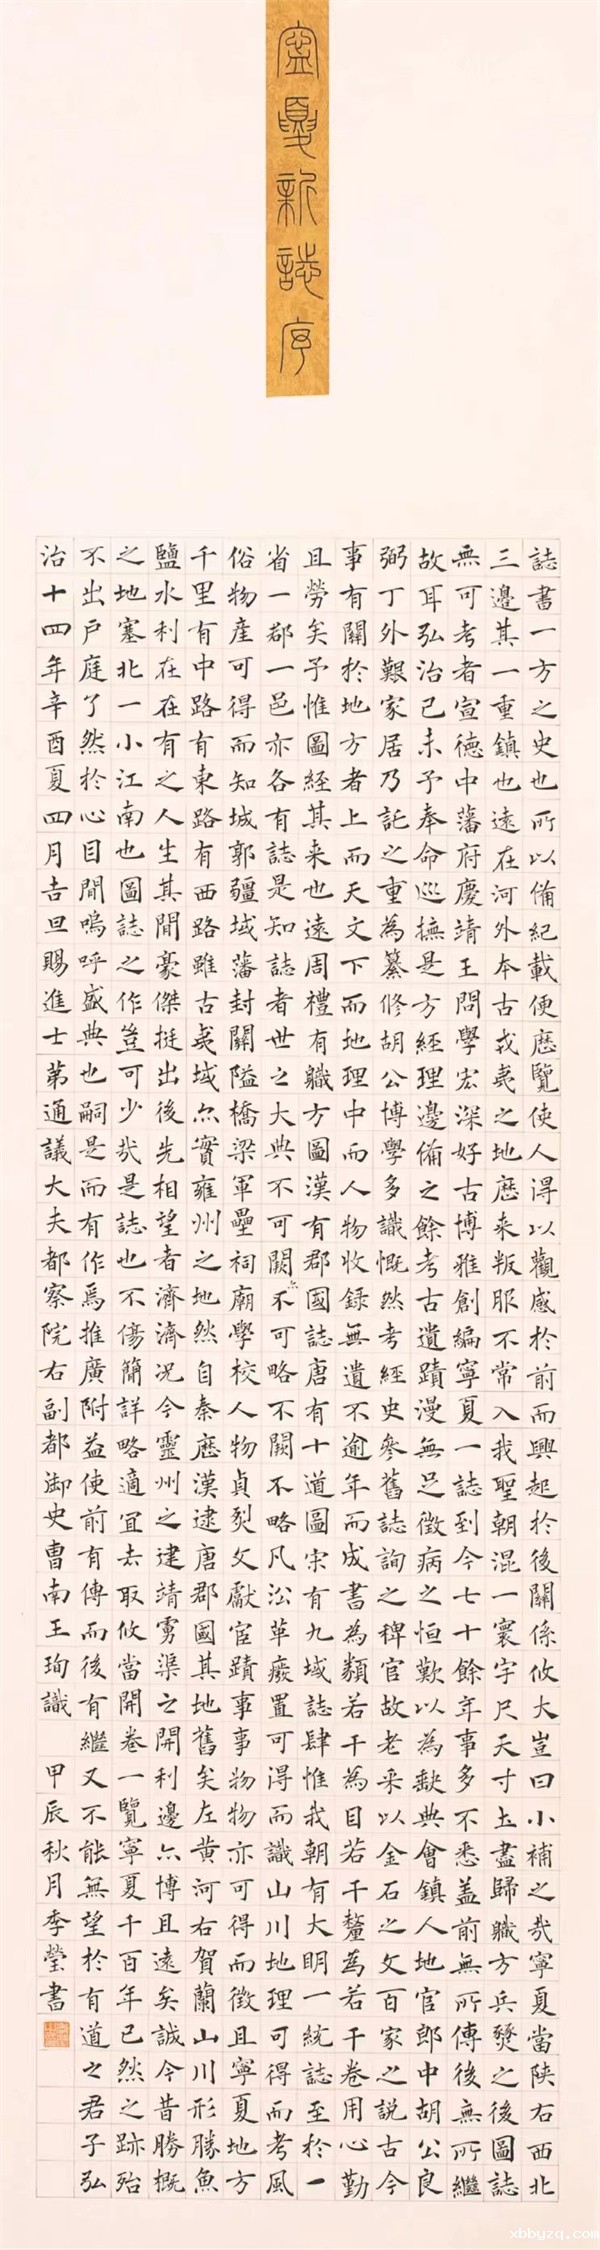 寧夏新誌序
誌書一方之史也所以備紀載便歷覽使人得以觀感於前而興起於後關係攸大豈曰小補之哉寧夏當陝右西北
三邊其一重鎮也遠在河外本古戎夷之地歷來叛服不常入我聖朝混一寰宇尺天寸土盡歸職方兵燹之後圖誌
無可考者宣德中藩府慶靖王問學宏深好古博雅創編寧夏一誌到今七十餘年事多不悉蓋前無所傳後無所繼
故耳弘治己未予奉命巡撫是方經理邊備之餘考古遺蹟漫無足徵病之恒歎以為缺典會鎮人地官郎中胡公良
弼丁外艱家居乃託之重為纂修胡公博學多識慨然考經史參舊誌詢之稗官故老采以金石之文百家之說古今
事有關於地方者上而天文下而地理中而人物收錄無遺不逾年而成書為類若干為目若干釐為若干卷用心勤
且勞矣予惟圖經其來也遠周禮有職方圖漢有郡國誌唐有十道圖宋有九域誌肆惟我朝有大明一統誌至於一
省一郡一邑亦各有誌是知誌者世之大典不可闕亦不可略不闕不略凡沿革廢置可得而識山川地理可得而考風
俗物產可得而知城郭疆域藩封關隘橋梁軍壘祠廟學校人物貞烈文獻宦蹟事事物物亦可得而徵且寧夏地方
千里有中路有東路有西路雖古夷域亦實雍州之地然自秦歷漢逮唐郡國其地舊矣左黃河右賀蘭山川形勝魚
鹽水利在在有之人生其間豪傑挺出後先相望者濟濟況今靈州之建靖虜渠之開利邊亦博且遠矣誠今昔勝概
之地塞北一小江南也圖誌之作豈可少哉是誌也不傷簡詳略適宜去取攸當開卷一覽寧夏千百年已然之跡殆
不出戶庭了然於心目間嗚呼盛典也嗣是而有作焉推廣附益使前有傳而後有繼又不能無望於有道之君子弘
治十四年辛酉夏四月吉旦賜進士第通議大夫都察院右副都御史曹南王珣識 甲辰秋月季瑩書
xbbyzq.com